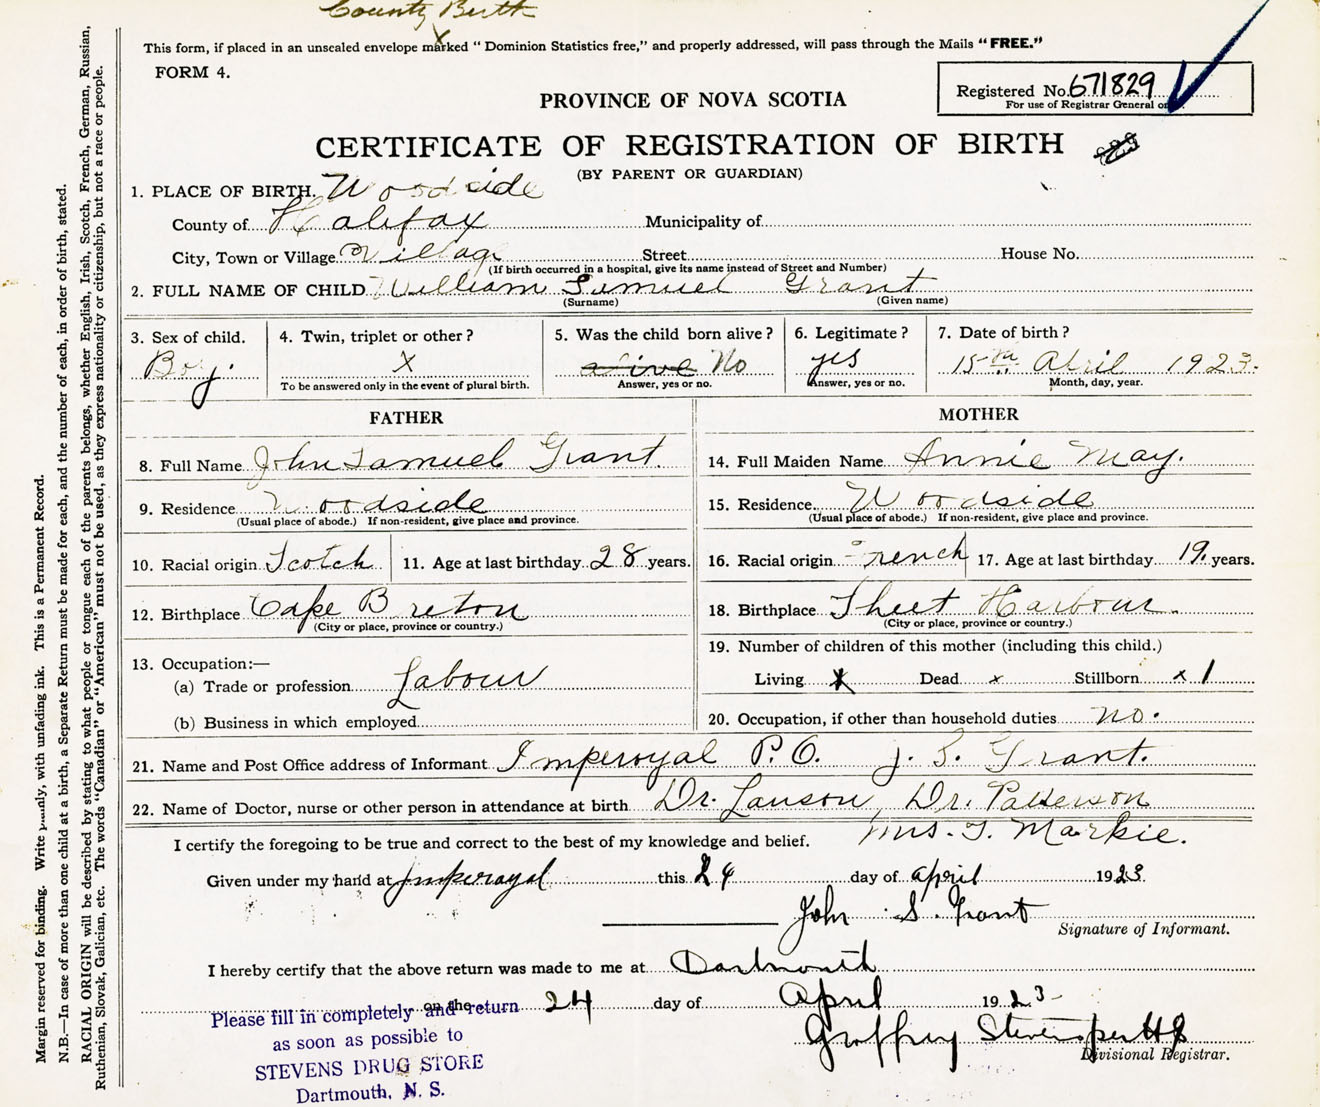 County Birth
This form, if placed in an unsealed envelope marked "Dominion Statistics free," and properly addressed, will pass through the Mails "FREE."
FORM 4.
Registered No. 671829
For use of Registrar General
PROVINCE OF NOVA SCOTIA
CERTIFICATE OF REGISTRATION OF BIRTH
(BY PARENT OR GUARDIAN)
1. PLACE OF BIRTH. Woodside
County of Halifax Municipality of
City, Town or Village Village Street House No.
(If birth occurred in a hospital, give its name instead of Street and Number)
2. FULL NAME OF CHILD William Samuel Grant
(Surname) (Given name)
3. Sex of child. 4. Twin, triplet or other? 5. Was the child born alive? 6. Legitimate? 7. Date of birth?
Boy. X alive No yes 15th April 1923.
To be answered only in the event of plural birth. Answer, yes or no. Answer, yes or no. Month, day, year.
FATHER MOTHER
8. Full Name John Samuel Grant. 14. Full Maiden Name Annie May.
9. Residence Woodside 15. Residence Woodside
(Usual place of abode.) If non-resident, give place and province. (Usual place of abode.) If non-resident, give place and province.
10. Racial origin Scotch 11. Age at last birthday 28 years. 16. Racial origin French 17. Age at last birthday 19. years.
12. Birthplace Cape Breton 18. Birthplace Sheet Harbour.
(City or place, province or country.) (City or place, province or country.)
13. Occupation:— 19. Number of children of this mother (including this child.)
(a) Trade or profession Labour Living x Dead x Stillborn x 1
(b) Business in which employed 20. Occupation, if other than household duties no.
21. Name and Post Office address of Informant Imperoyal P.O. J. S. Grant.
22. Name of Doctor, nurse or other person in attendance at birth Dr. Lawson, Dr. Patterson
Mrs. T. Markie.
I certify the foregoing to be true and correct to the best of my knowledge and belief.
Given under my hand at Imperoyal this 24 day of april 1923.
John S. Grant
Signature of Informant.
I hereby certify that the above return was made to me at Dartmouth
on the 24 day of April 1923
Please fill in completely and return
as soon as possible to
STEVENS DRUG STORE
Dartmouth, N. S.
Geoffrey Stevens per
Divisional Registrar.
Margin reserved for binding. Write plainly, with unfading ink. This is a Permanent Record.
N.B.—In case of more than one child at a birth, a Separate Return must be made for each, and the number of each, in order of birth, stated.
RACIAL ORIGIN will be described by stating to what people or tongue each of the parents belongs, whether English, Irish, Scotch, French, German, Russian,
Ruthenian, Slovak, Galician, etc. The words "Canadian" or "American" must not be used, as they express nationality or citizenship, but not a race or people.